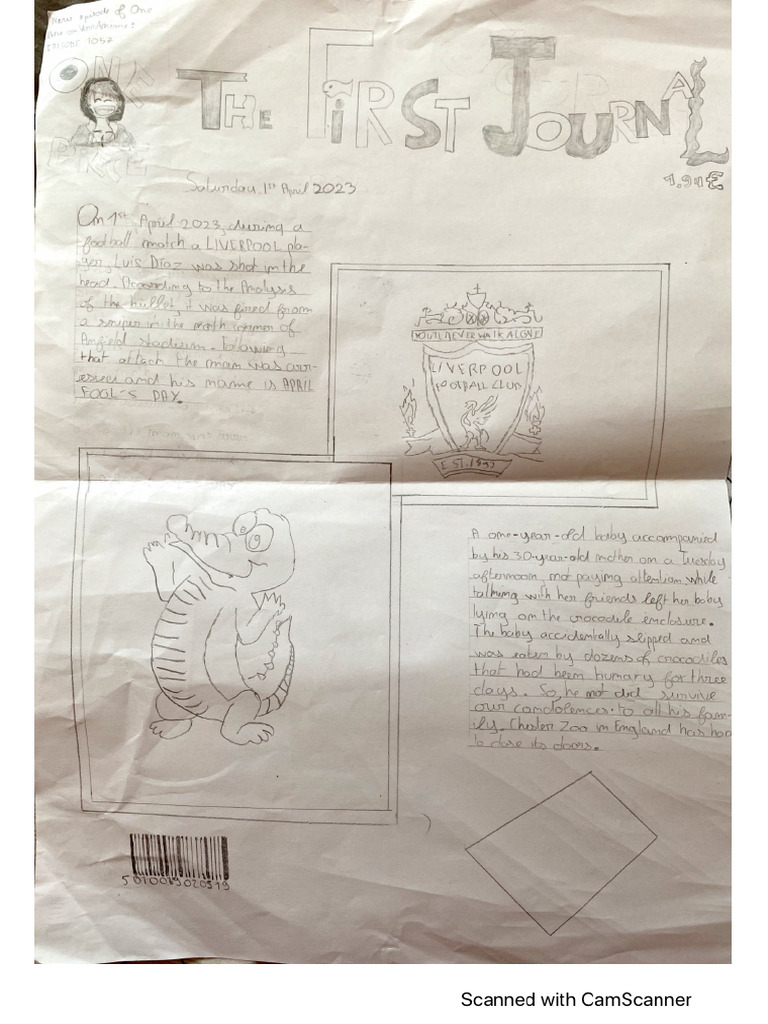 New episode of One
EPISODE 1057
ONE
PIECE
THE FIRST JOURNAL
Saturday, 1st April 2023
1.94£
On 1st April 2023, during a
football match a LIVERPOOL pla-
yer, Luis Díaz was shot in the
head. According to the Analysis
of the bullet, it was fired from
a sniper in the north corner of
Anfield stadium. Following
that attack the man was arr-
ested and his name is APRIL
FOOL'S DAY.
YOU'LL NEVER WALK ALONE
LIVERPOOL
FOOTBALL CLUB
EST. 1892
A one-year-old baby accompanied
by his 30-year-old mother on a Tuesday
afternoon, not paying attention while
talking with her friends left her baby
lying on the crocodile enclosure.
The baby accidentally slipped and
was eaten by dozens of crocodiles
that had been hungry for three
days. So, he not did survive
our condolences to all his fam-
ily. Chester Zoo in England has had
to close its doors.
5010019020519
Scanned with CamScanner